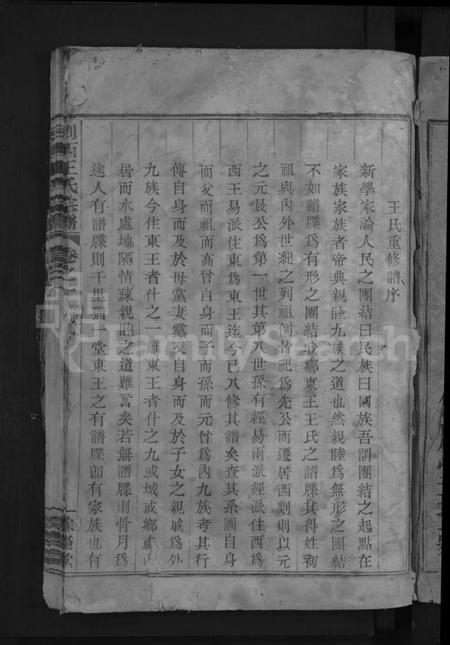 王氏重修譜序
新學家論人民之團結曰民族曰國族吾謂團結之起點在
家族家族者帝典親睦九族之道也然親睦爲無形之團結
不如譜牒爲有形之團結我鄉東王王氏之譜牒其得姓初
祖與內外世紀之列祖例皆祀爲先公而遷居西剡則以元
之元晟公爲第一世其第八世孫有經易兩派經派住西爲
西王易派住東爲東王迄今已八修其譜矣查其系圖自身
而父而祖而高曾自身而子而孫而元曾爲內九族考其行
傳自身而及於母黨妻黨及自身而及於子女之親戚爲外
九族今住東王者什之一離東王者什之九或城或鄉
居而水處地隔情疎親睦之道難言矣若無譜牒則骨肉爲
途人有譜牒則千里 一堂東王之有譜牒卽有家族也有
王氏宗譜
卷
FamilySearch